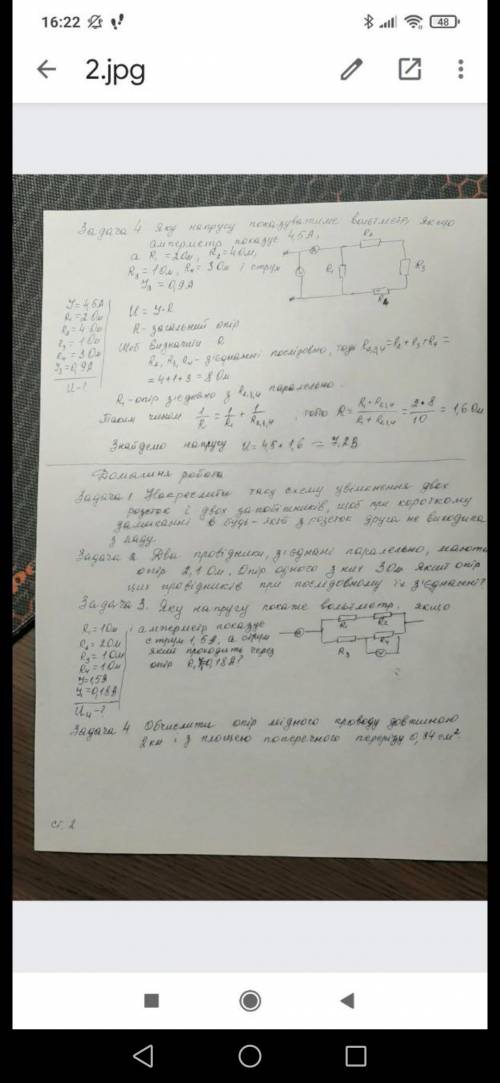 16:22
48
2.jpg
Задача 4 Яку напругу показуватиме вольтметр, якщо
амперметр показує 4,5А,
а R₁ = 2 Ом, R₂ = 4 Ом,
R₃ = 1 Ом, R₄ = 3 Ом і струм
I₃ = 0,9А
R₂
R₁
R₃
R₄
I = 4,5А
R₁ = 2 Ом
R₂ = 4 Ом
R₃ = 1 Ом
R₄ = 3 Ом
I₃ = 0,9А
U - ?
U = I · R
R - загальний опір
Щоб визначити R
R₂, R₃, R₄ - з'єднанні послідовно, тоді R₂,₃,₄ = R₂ + R₃ + R₄ =
= 4+1+3 = 8 Ом
R₁ - опір з'єднано з R₂,₃,₄ паралельно.
Таким чином 1/R = 1/R₁ + 1/R₂,₃,₄, тобто R = R₁ · R₂,₃,₄ / R₁ + R₂,₃,₄ = 2 · 8 / 10 = 1,6 Ом
Знайдемо напругу U = 4,5 · 1,6 = 7,2В
Домашня робота
Задача 1 Накреслити схему увімкнення двох
розеток і двох запобіжників, щоб при короткому
замиканні в будь-якій з розеток друга не виходила
з ладу.
Задача 2. Два провідники, з'єднані паралельно, мають
опір 2,1 Ом. Опір одного з них 3 Ом. Який опір
цих провідників при послідовному їх з'єднанні?
Задача 3. Яку напругу покаже вольтметр, якщо
R₁ = 1 Ом
R₂ = 2 Ом
R₃ = 1 Ом
R₄ = 1 Ом
I = 1,5А
I = 0,18А
U₄ - ?
і амперметр показує
струм 1,5А, а струм
який проходить через
опір 0,18А?
R₁
R₂
R₃
R₄
Задача 4 Обчислити опір мідного проводу довжиною
2км і з площею поперечного перерізу 0,34 см².
ст. 2